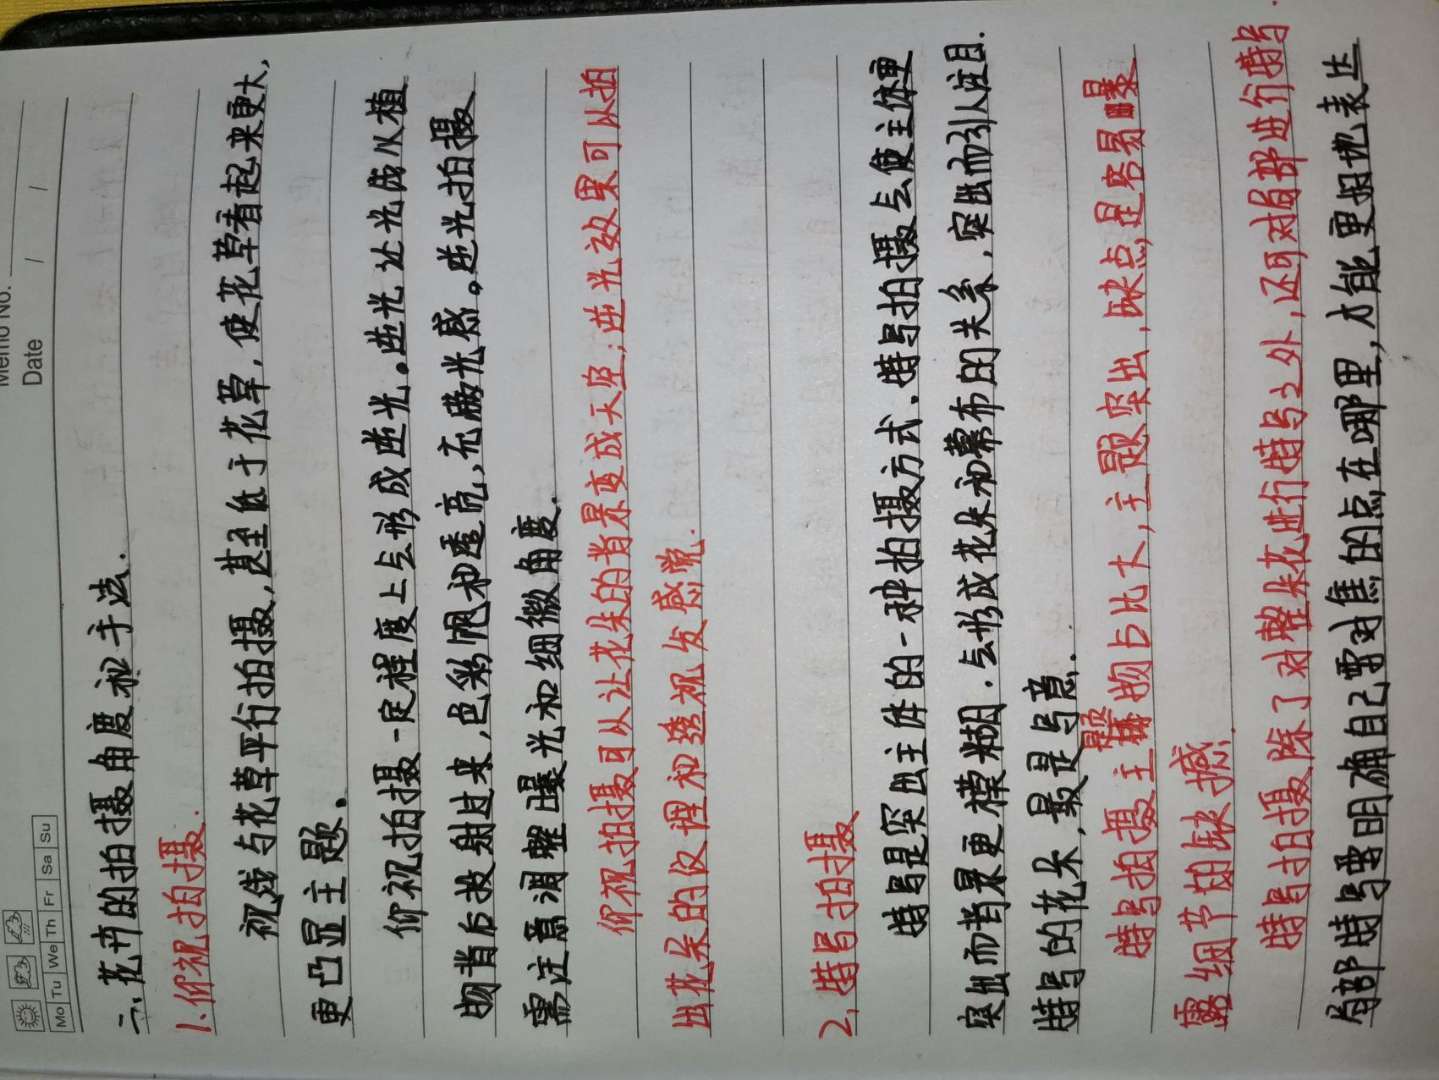 Memo No.
Date / /
Mo Tu We Th Fr Sa Su
二、花卉的拍摄角度和手法.
1.仰视拍摄.
视线与花草平行拍摄,甚至低于花草,使花草看起来更大,
更凸显主题。
仰视拍摄一定程度上会形成逆光。逆光让光线从植
物背后投射过来,色彩饱和透亮,充满光感。逆光拍摄
需注意调整曝光和细微角度.
仰视拍摄可以让花朵的背景变成天空;逆光效果可以拍
出花朵的纹理和透视发感觉.
2,特写拍摄
特写是突出主体的一种拍摄方式、特写拍摄会使主体更
突出而背景更模糊.会形成花朵和幕布的关系,突出而引人注目.
特写的花朵,最是写意.
特写拍摄主题物占比大,主题突出,缺点是容易曝
露细节的缺憾.
特写拍摄除了对整朵花进行特写之外,还可对局部进行特写.
局部特写要明确自己要对焦的点在哪里,才能更好地表达